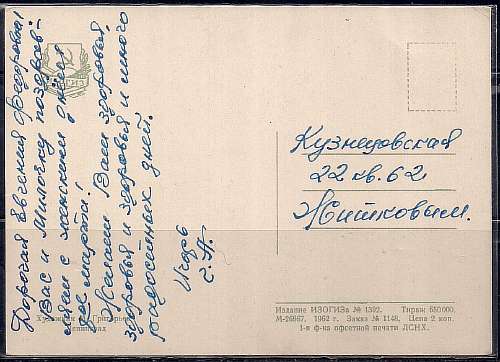 Дорогая Евгения Федоровна!
Вас и Милочку поздрав-
ляем с женским днем
8е марта!
Желаем Вам здоровья,
здоровья и здоровья и много
радостных дней.
Игорь
ИЗОГИЗ
Кузнецовская
22 кв. 62
Житковым.
Художник Григорьев
Издание ИЗОГИЗа № 1392. Тираж 650.000.
М-26967. 1962 г. Заказ № 1148. Цена 2 коп.
1-я ф-ка офсетной печати ЛСНХ.